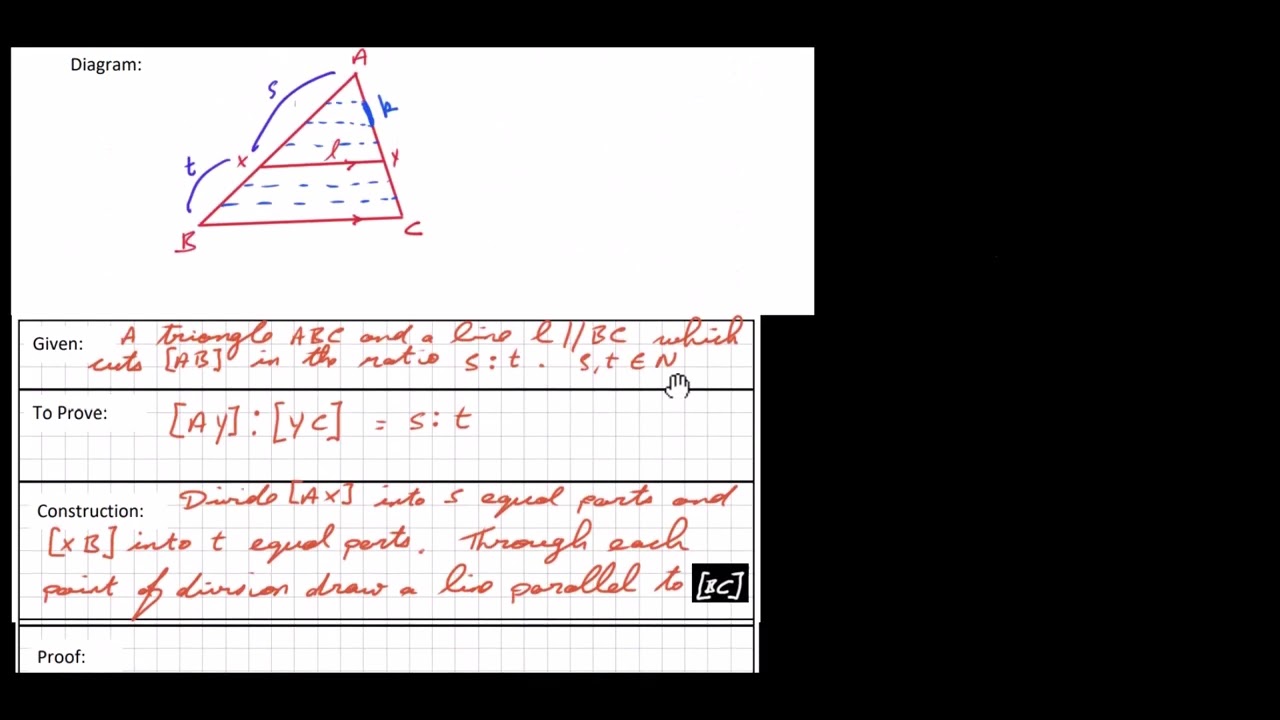 Diagram:
A
s
k
t
x
l
y
B
C
Given: A triangle ABC and a line l // BC which
cuts [AB] in the ratio s : t . s, t ∈ N
To Prove: [AY] : [YC] = s : t
Construction: Divide [AX] into s equal parts and
[XB] into t equal parts. Through each
point of division draw a line parallel to [BC]
Proof: